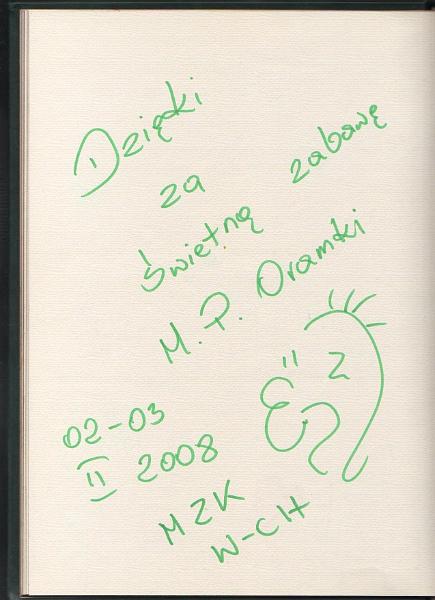 Dzięki
za
świetną zabawę
M. P. Oramki
02-03
II 2008
MZK
W-CH